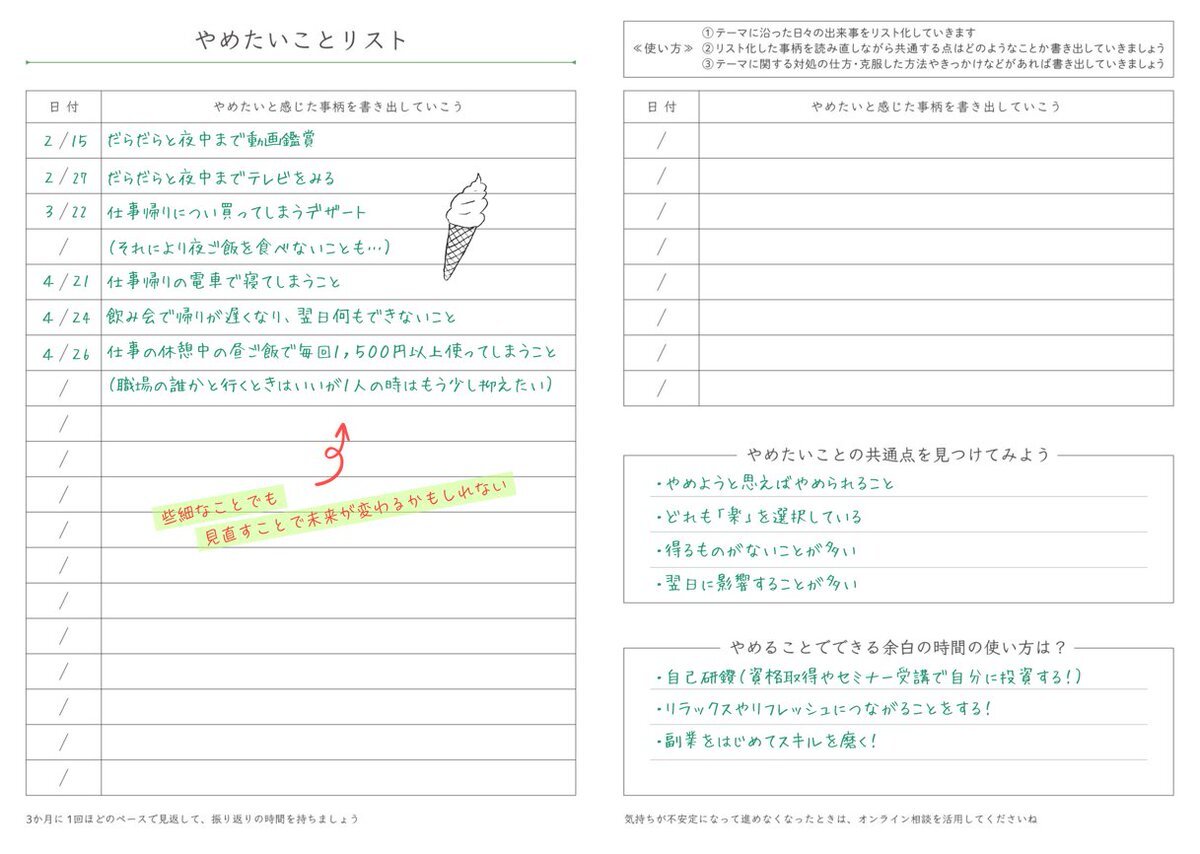 やめたいことリスト
日付 やめたいと感じた事柄を書き出していこう
2/15 だらだらと夜中まで動画鑑賞
2/27 だらだらと夜中までテレビをみる
3/22 仕事帰りについ買ってしまうデザート
/ (それにより夜ご飯を食べないことも…)
4/21 仕事帰りの電車で寝てしまうこと
4/24 飲み会で帰りが遅くなり、翌日何もできないこと
4/26 仕事の休憩中の昼ご飯で毎回1,500円以上使ってしまうこと
/ (職場の誰かと行くときはいいが1人の時はもう少し抑えたい)
/
/
/
/
/
/
/
/
/
/
/
些細なことでも
見直すことで未来が変わるかもしれない
3か月に1回ほどのペースで見返して、振り返りの時間を持ちましょう
≪使い方≫
①テーマに沿った日々の出来事をリスト化していきます
②リスト化した事柄を読み直しながら共通する点はどのようなことか書き出していきましょう
③テーマに関する対処の仕方・克服した方法やきっかけなどがあれば書き出していきましょう
日付 やめたいと感じた事柄を書き出していこう
/
/
/
/
/
/
/
/
やめたいことの共通点を見つけてみよう
・やめようと思えばやめられること
・どれも「楽」を選択している
・得るものがないことが多い
・翌日に影響することが多い
やめることでできる余白の時間の使い方は？
・自己研鑽(資格取得やセミナー受講で自分に投資する！)
・リラックスやリフレッシュにつながることをする！
・副業をはじめてスキルを磨く！
気持ちが不安定になって進めなくなったときは、オンライン相談を活用してくださいね